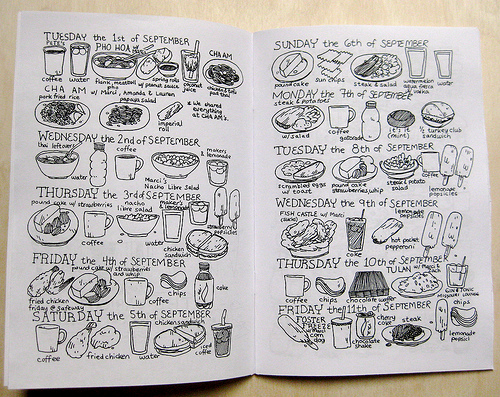 TUESDAY the 1st of SEPTEMBER
PETE'S
PHO HOA
CHA AM
coffee
water
flank, meatball
pho
w/ Marci, Amanda & Lauren
spring rolls
w/ peanut sauce
coconut
juice
pad thai
CHA AM
pork fried rice
papaya salad
imperial
roll
* we shared
everything
at CHA AM.
WEDNESDAY the 2nd of SEPTEMBER
thai leftovers
water
coffee
Marci's
Nacho Libre Salad
makers
& lemonade
THURSDAY the 3rd of SEPTEMBER
pound cake w/ strawberries
coffee
nacho
libre salad
water
maker's
chicken
sandwich
strawberry
popsicles
FRIDAY the 4th of SEPTEMBER
pound cake w/ strawberries
and whip
fried chicken
friday @ safeway
coffee
chips
coke
SATURDAY the 5th of SEPTEMBER
coffee
fried chicken
water
chicken sandwich
iced
coffee
SUNDAY the 6th of SEPTEMBER
pound cake
sun chips
steak & salad
watermelon
agua fresca
& vodka
water
MONDAY the 7th of SEPTEMBER
steak & potatoes
w/ salad
coffee
gatorade
it's it
(mint)
1/2 turkey club
sandwich
TUESDAY the 8th of SEPTEMBER
scrambled eggs
w/ toast
pound cake
strawberries, whip
steak & potato
salad
coffee
lemonade
popsicles
WEDNESDAY the 9th of SEPTEMBER
FISH CASTLE w/ Marci
coke
hot pocket
pepperoni
lemonade
popsicles
THURSDAY the 10th of SEPTEMBER
coffee
chips
chocolate
TULAN w/ Marci
GIN & TONIC
MISSOURI LOUNGE
FRIDAY the 11th of SEPTEMBER
FOSTER
FREEZE
w/ Marci
corn
dog
cherry
coke
chocolate
shake
steak
lemonade
popsicle
chips